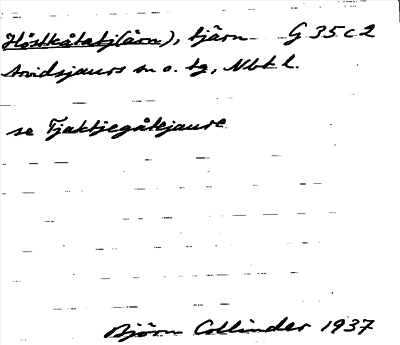 Höstkåtatj(ärn), tjärn G 35 c 2
Arvidsjaurs sn o. tg, Nbt l.
se Tjaktjegåtejaure
Björn Collinder 1937